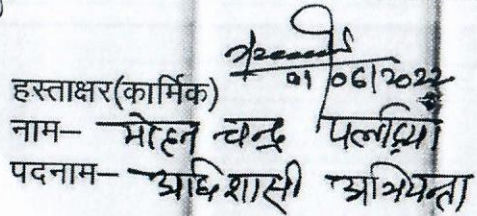 01/06/2022
हस्ताक्षर(कार्मिक)
नाम– मोहन चन्द्र पलड़िया
पदनाम– अधिशासी अभियन्ता